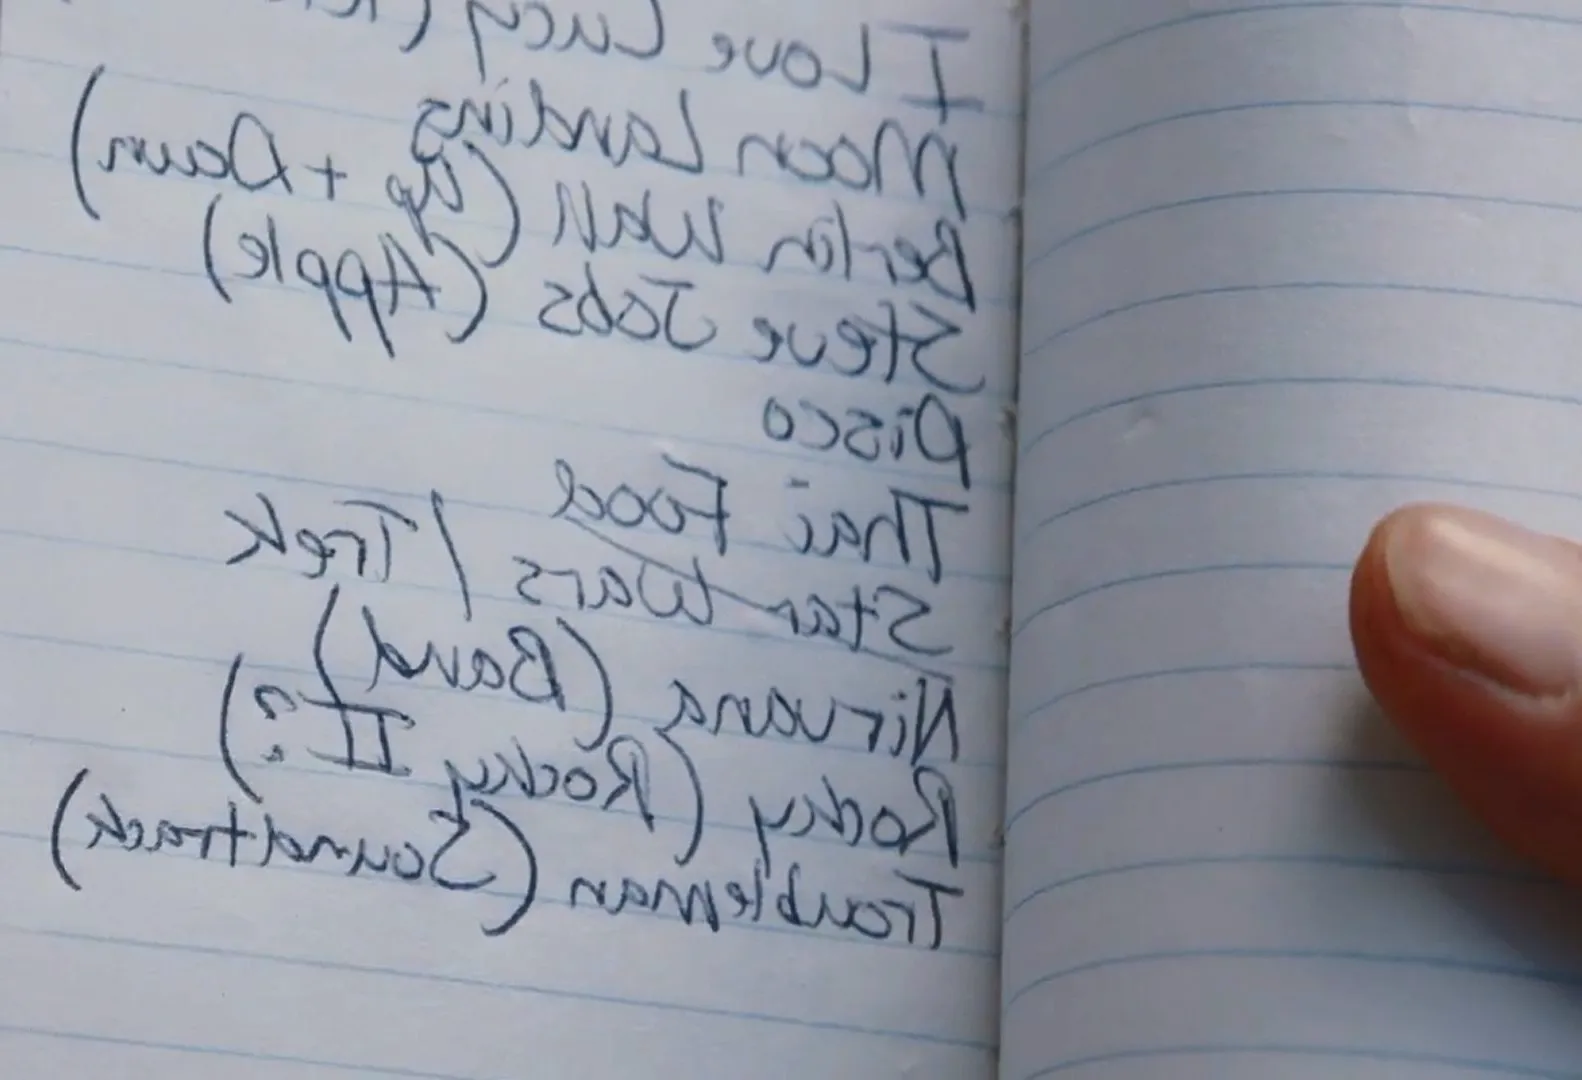 I Love Lucy (
Moon Landing
Berlin Wall (Up + Down)
Steve Jobs (Apple)
Disco
Thai Food
Star Wars / Trek
Nirvana (Band)
Rocky (Rocky II?)
Troubleman (Soundtrack)